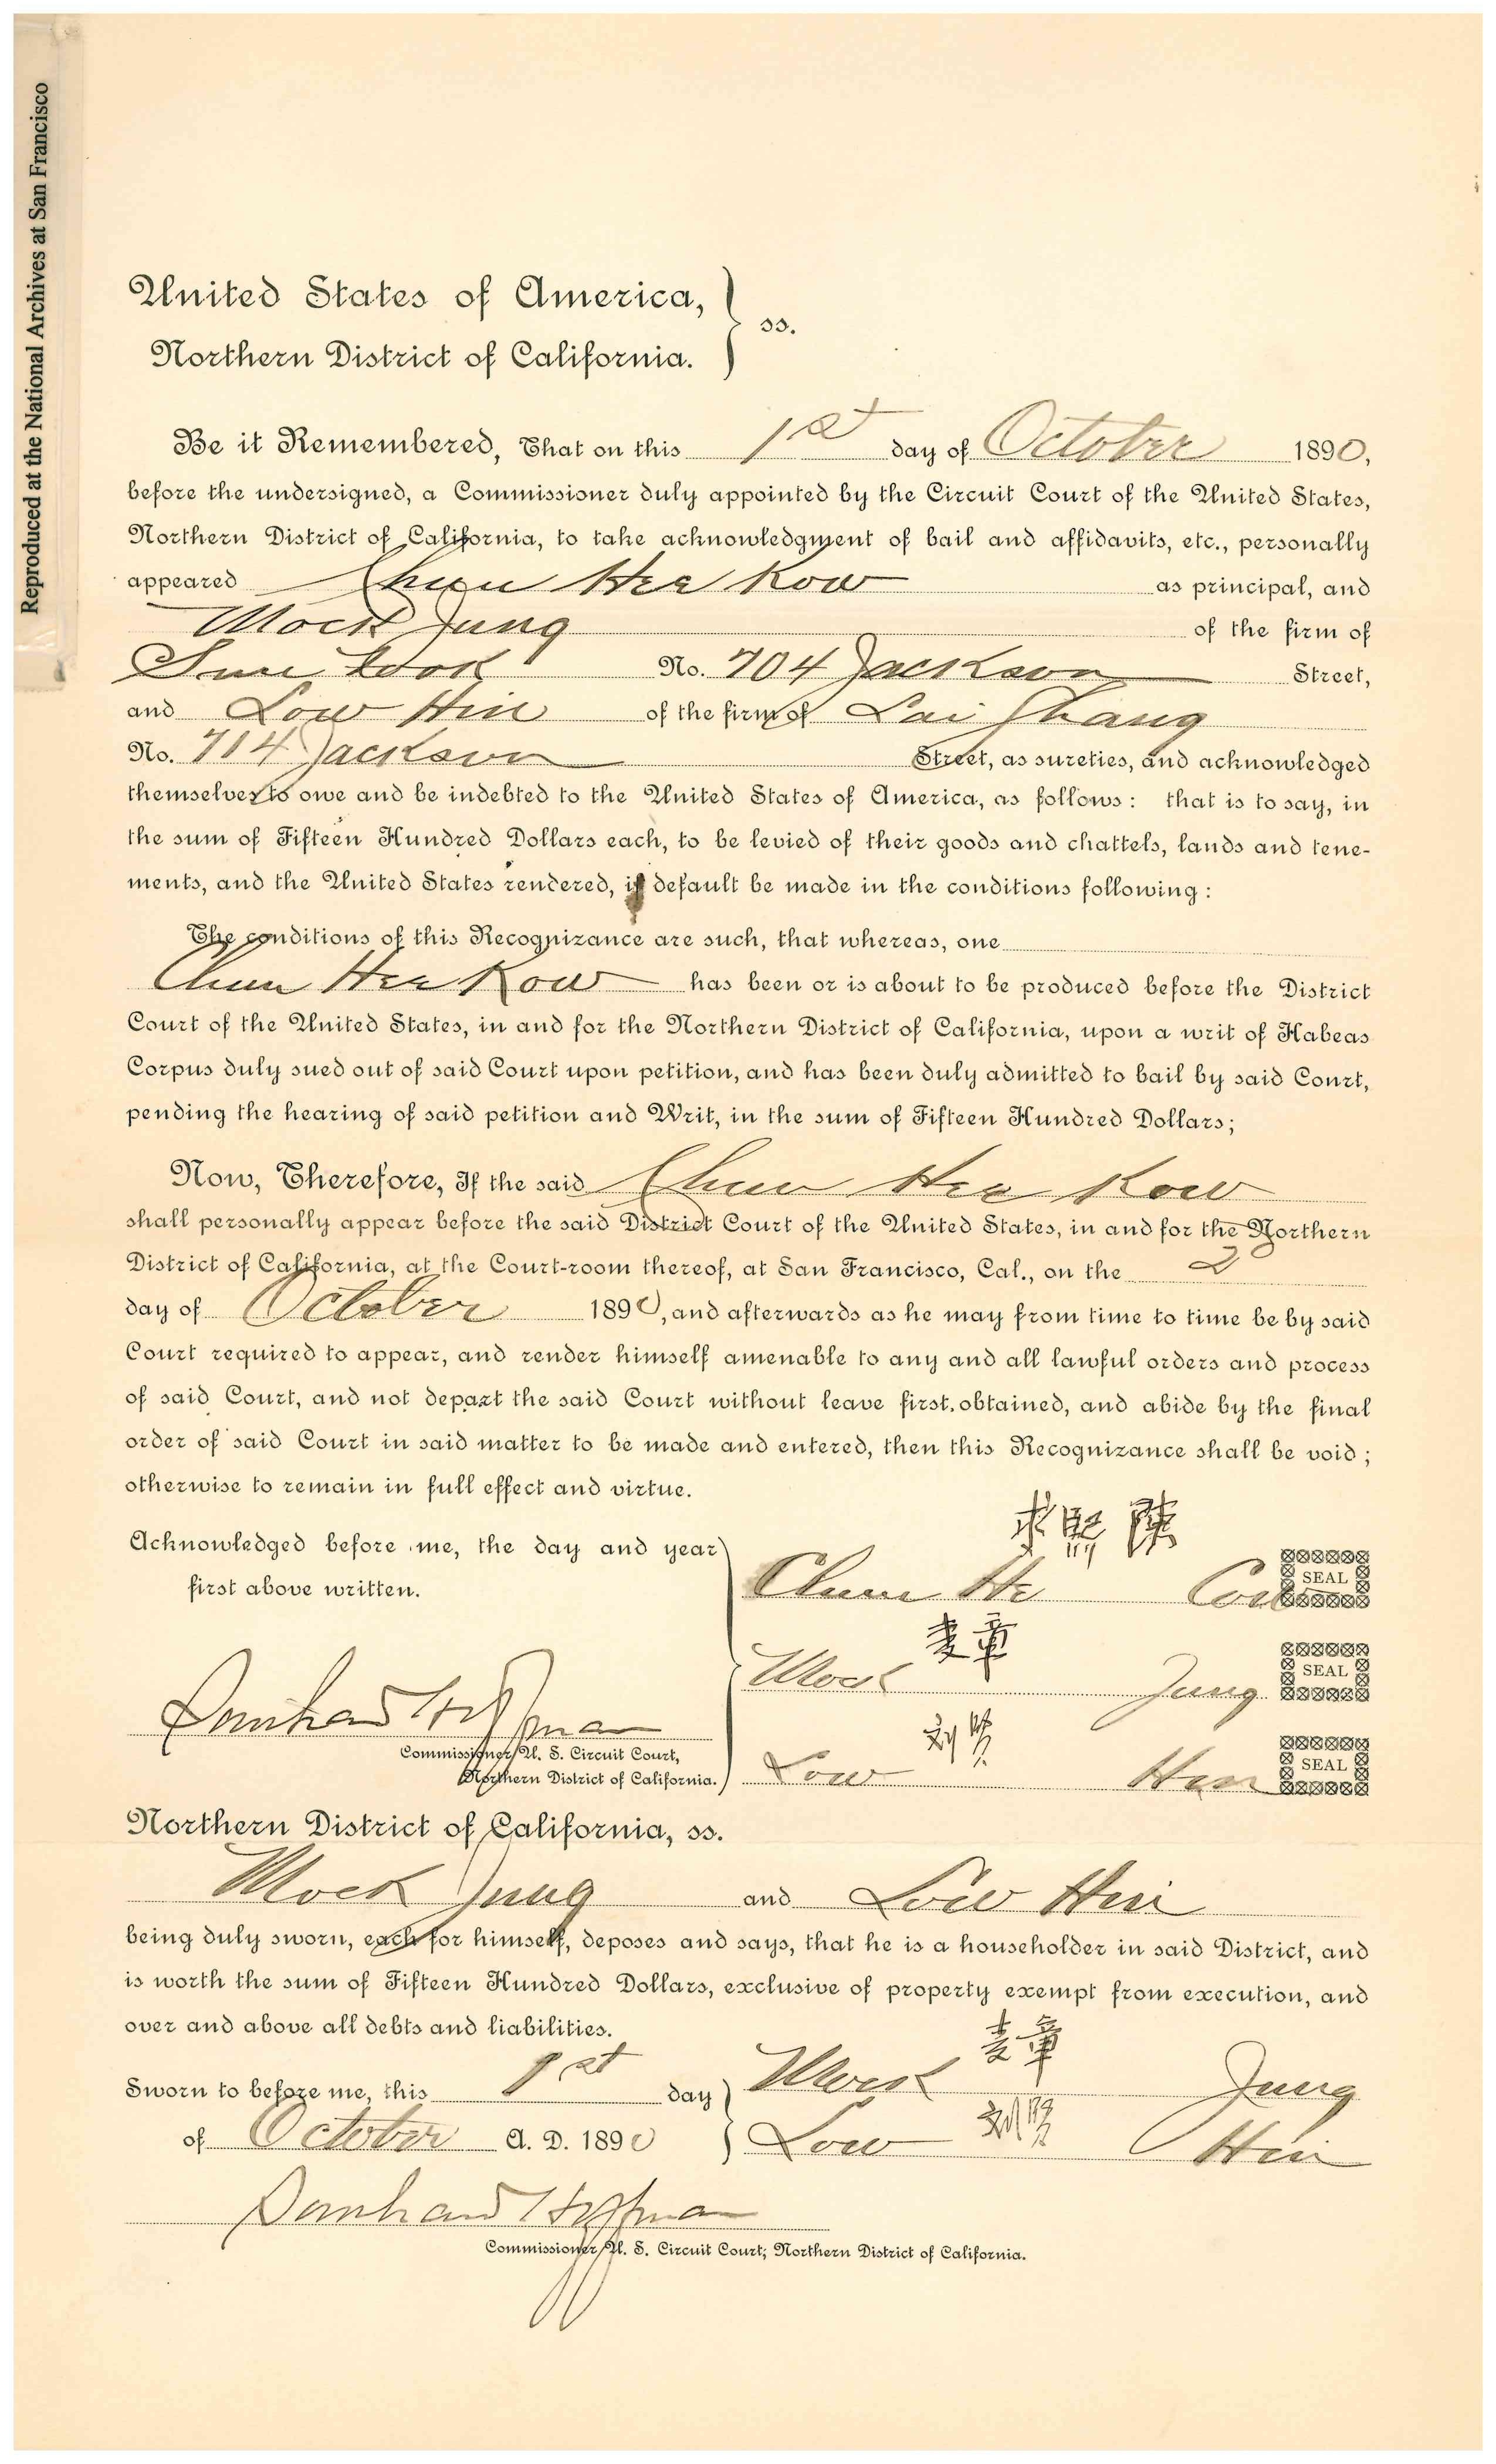 Reproduced at the National Archives at San Francisco
United States of America,
Northern District of California. } ss.
Be it Remembered, That on this 1st day of October 1890,
before the undersigned, a Commissioner duly appointed by the Circuit Court of the United States,
Northern District of California, to take acknowledgment of bail and affidavits, etc., personally
appeared Chun Hee Kow as principal, and
Mock Jung of the firm of
No. 704 Jackson Street,
and Low Hin of the firm of Lai Chang
No. 714 Jackson Street, as sureties, and acknowledged
themselves to owe and be indebted to the United States of America, as follows: that is to say, in
the sum of Fifteen Hundred Dollars each, to be levied of their goods and chattels, lands and tene-
ments, and the United States rendered, if default be made in the conditions following:
The conditions of this Recognizance are such, that whereas, one
Chun Hee Kow has been or is about to be produced before the District
Court of the United States, in and for the Northern District of California, upon a writ of Habeas
Corpus duly sued out of said Court upon petition, and has been duly admitted to bail by said Court,
pending the hearing of said petition and Writ, in the sum of Fifteen Hundred Dollars;
Now, Therefore, If the said Chun Hee Kow
shall personally appear before the said District Court of the United States, in and for the Northern
District of California, at the Court-room thereof, at San Francisco, Cal., on the 2d
day of October 1890, and afterwards as he may from time to time be by said
Court required to appear, and render himself amenable to any and all lawful orders and process
of said Court, and not depart the said Court without leave first obtained, and abide by the final
order of said Court in said matter to be made and entered, then this Recognizance shall be void;
otherwise to remain in full effect and virtue.
求熙陳
Acknowledged before me, the day and year
first above written.
Chun He SEAL
麦章
Mock Jung SEAL
Commissioner U. S. Circuit Court,
Northern District of California.
Low Hin SEAL
Northern District of California, ss.
Mock Jung and Low Hin
being duly sworn, each for himself, deposes and says, that he is a householder in said District, and
is worth the sum of Fifteen Hundred Dollars, exclusive of property exempt from execution, and
over and above all debts and liabilities.
麦章
Sworn to before me, this 1st day Mock Jung
of October A. D. 1890 Low Hin
Commissioner U. S. Circuit Court, Northern District of California.